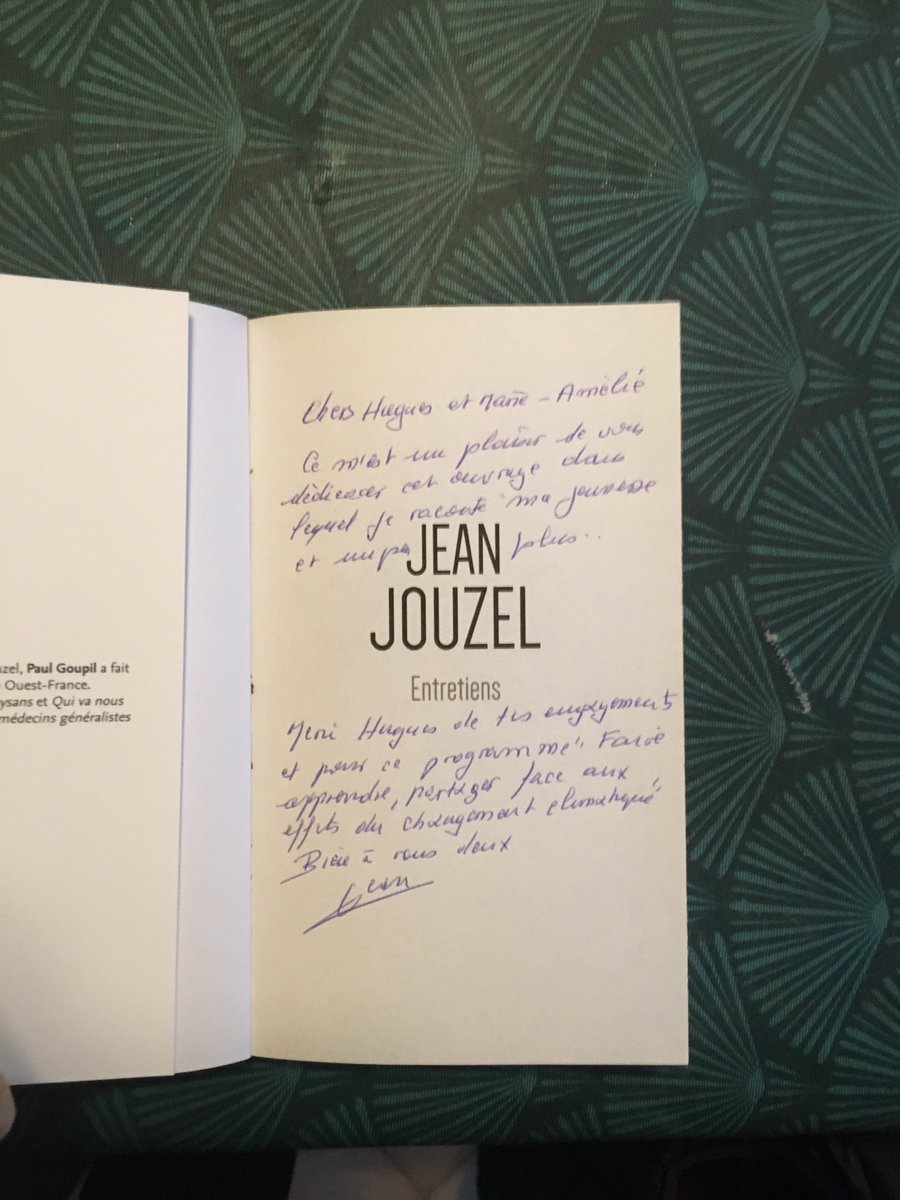 uzel, Paul Goupil a fait
Ouest-France.
ysans et Qui va nous
médecins généralistes
Chers Hugues et Marie - Amélie
Ce m'est un plaisir de vous
dédicacer cet ouvrage dans
lequel je raconte ma jeunesse
et un peu plus..
JEAN
JOUZEL
Entretiens
Merci Hugues de tes engagements
et pour ce programme " Faire
apprendre, partager face aux
effets du changement climatique"
Bien à vous deux
Jean